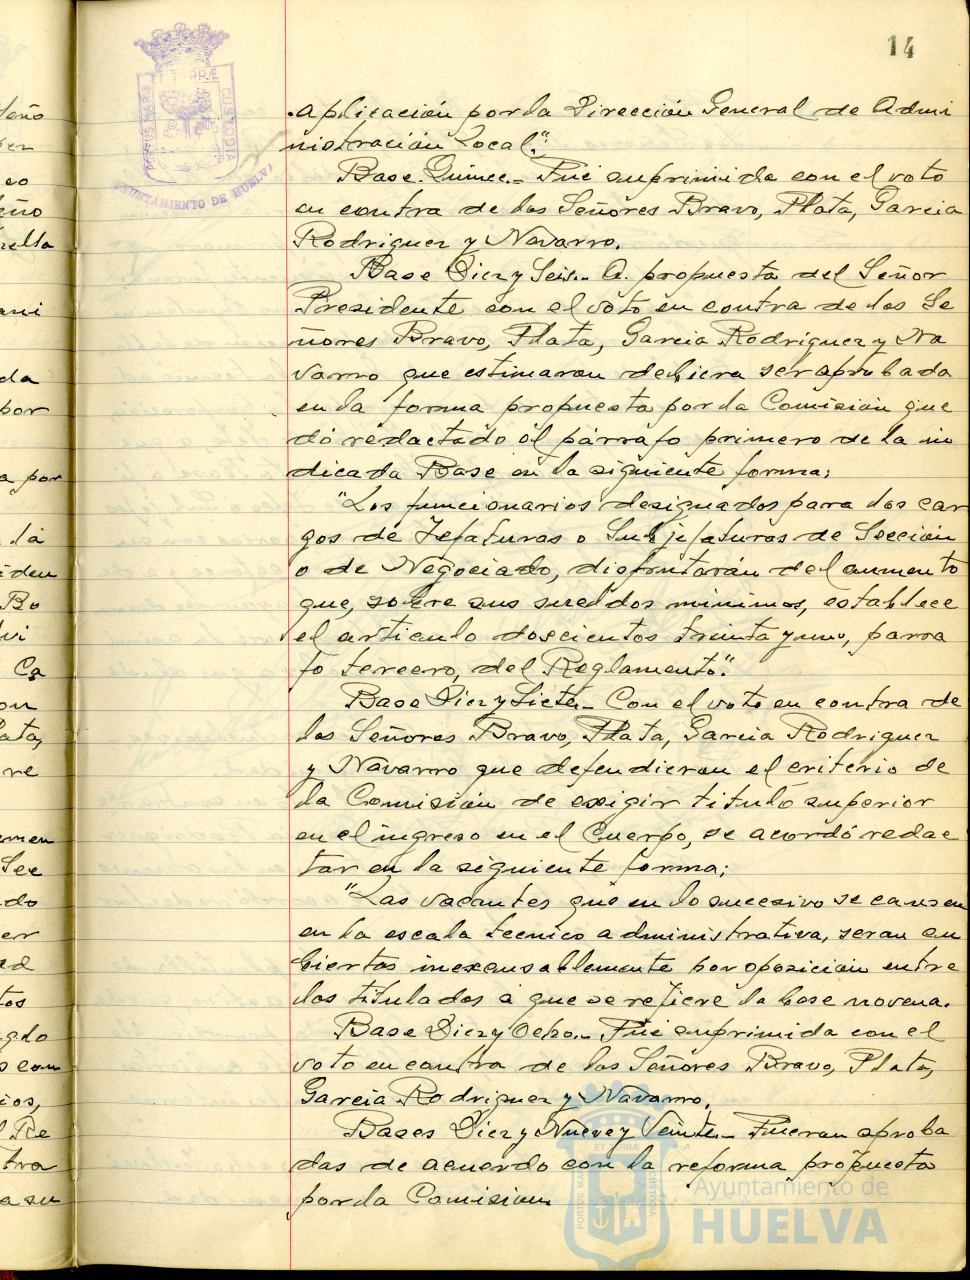 14
aplicación por la Dirección General de Admi
nistración Local."
Base Quince.- Fué suprimida con el voto
en contra de los Señores Bravo, Plata, Garcia
Rodriguez y Navarro.
Base Diez y Seis.- A propuesta del Señor
Presidente con el voto en contra de los Se
ñores Bravo, Plata, Garcia Rodríguez y Na
varro que estimaron debiera ser aprobada
en la forma propuesta por la Comisión que
dó redactado el párrafo primero de la in
dicada Base en la siguiente forma:
"Los funcionarios designados para los car
gos de Jefaturas o Subjefaturas de Sección
o de Negociado, disfrutarán del aumento
que, sobre sus sueldos minimos, establece
el articulo doscientos treinta y uno, parra
fo tercero, del Reglamento."
Base Diez y Siete.- Con el voto en contra de
los Señores Bravo, Plata, Garcia Rodriguez
y Navarro que defendieron el criterio de
la Comisión de exigir titulo superior
en el ingreso en el Cuerpo, se acordó redac
tar en la siguiente forma:
"Las vacantes que en lo sucesivo se causen
en la escala tecnico administrativa, seran cu
biertas inexcusablemente por oposicion entre
los titulados a que se refiere la base novena.
Base Diez y Ocho.- Fué suprimida con el
voto en contra de los Señores Bravo, Plata,
Garcia Rodriguez y Navarro.
Bases Diez y Nueve y Veinte.- Fueron aproba
das de acuerdo con la reforma propuesta
por la Comision
PORTUS MARIS
ET TERRÆ
CUSTODIA
AYUNTAMIENTO DE HUELVA
Ayuntamiento de
HUELVA